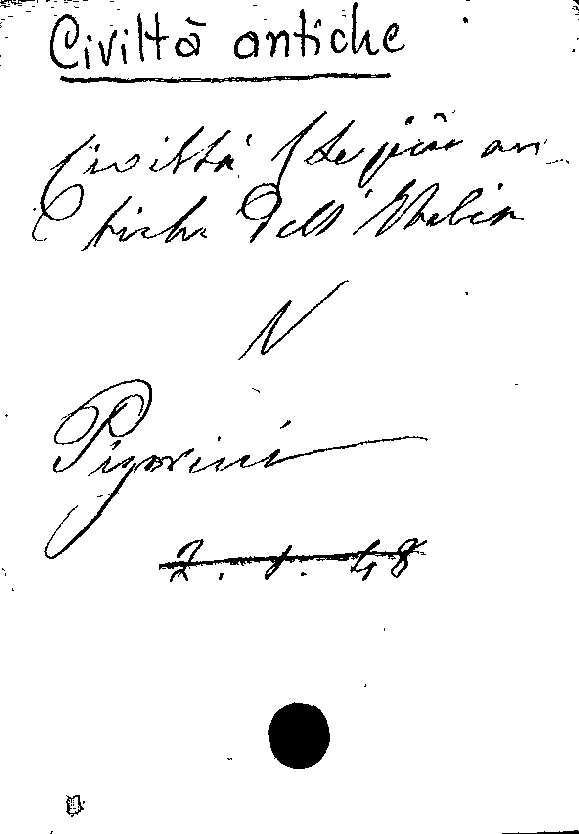 Civiltà antiche
Civiltà (Le più an-
tiche dell' Italia
V
Pigorini
2. 1. 48